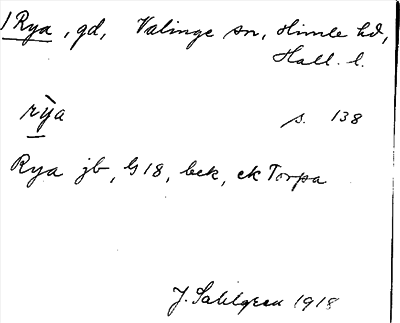 1 Rya, gd, Valinge sn, Himle hd,
Hall. l.
rỳa s. 138
Rya jb, G18, bek, ek Torpa
J. Sahlgren 1918